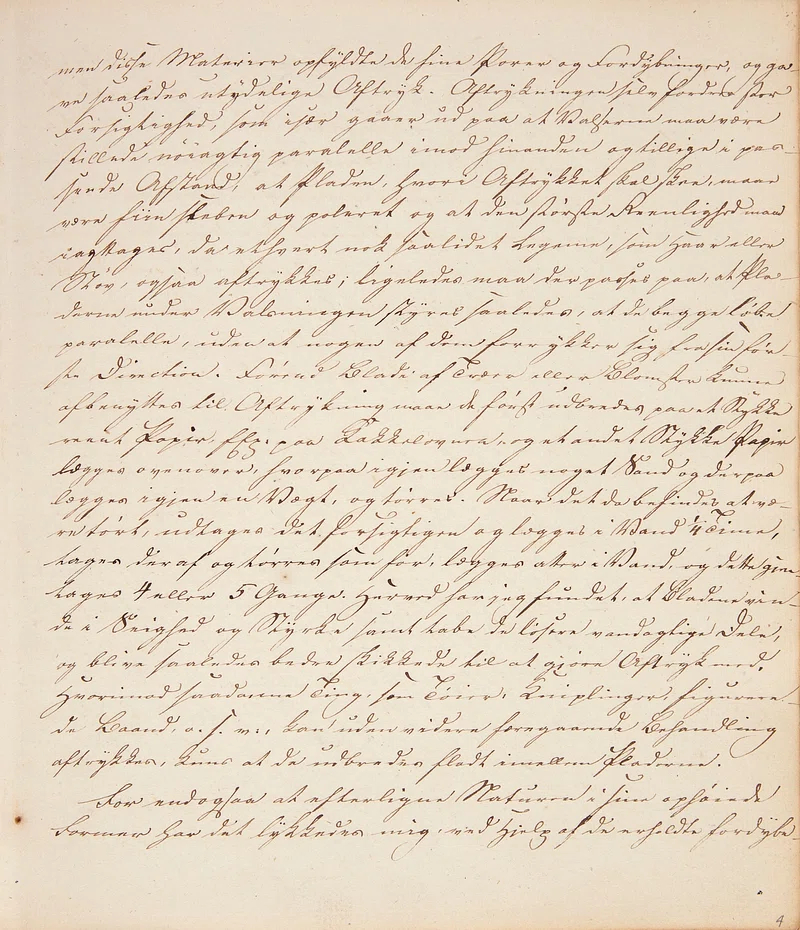 men disse Materier opfyldte de fine Porer og Fordybninger, og ga-
ve saaledes utydelige Aftryk. Aftrykningen selv fordrer stor
Forsigtighed, som især gaaer ud paa at Valserne maa være
stillede nöiagtig paralelle imod hinanden og tillige i pas-
sende Afstand, at Pladen, hvori Aftrykket skal skee, maae
være fiin sleben og poleret og at den störste Reenlighed maa
iagttages, da ethvert nok saa lidet Legeme, som Haar eller
Stöv, ogsaa aftrykkes; ligeledes maa der passes paa, at Pla-
derne under Valsningen styres saaledes, at de begge löbe
paralelle, uden at nogen af dem forrykker sig fra sin för-
ste Direction. Förend Blade af Træer eller Blomster kunne
afbenyttes til Aftrykning maae de först udbredes paa et Stykke
reent Papir, f Ex: paa Kakkelovnen, og et andet Stykke Papir
lægges ovenover, hvorpaa igjen lægges noget Sand og derpaa
lægges igjen en Vægt, og törres. Naar det da befindes at væ-
re tört, udtages det forsigtigen og lægges i Vand 1/4 Time,
tages deraf og törres som för, lægges atter i Vand, og dette gjen-
tages 4 eller 5 Gange. Herved har jeg fundet, at Bladene vin-
de i Seighed og Styrke samt tabe de lösere vandagtige Dele,
og blive saaledes bedre skikkede til at gjöre Aftryk med.
Hvorimod saadanne Ting, som Töier, Kniplinger, figurere-
de Baand, o. s. v:, kan uden videre foregaaende Behandling
aftrykkes, kuns at de udbredes fladt imellem Pladerne.
For endogsaa at efterligne Naturen i sine ophöiede
Former har det lykkedes mig, ved Hjelp af de erholdte fordybe-
4